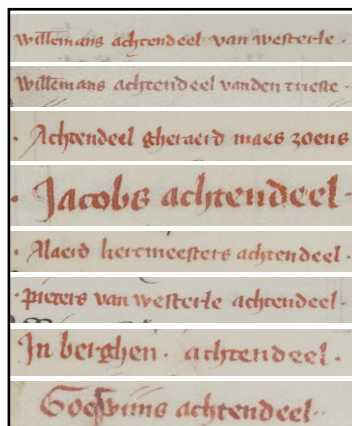 willemans achtendeel van westerle ·
willemans achtendeel vanden trieste ·
· Achtendeel gheraerd maes zoens
· Jacobs achtendeel ·
· Alaerd hertmeesters achtendeel ·
· pieters van westerle achtendeel ·
In berghen · achtendeel ·
Goeswins achtendeel ·